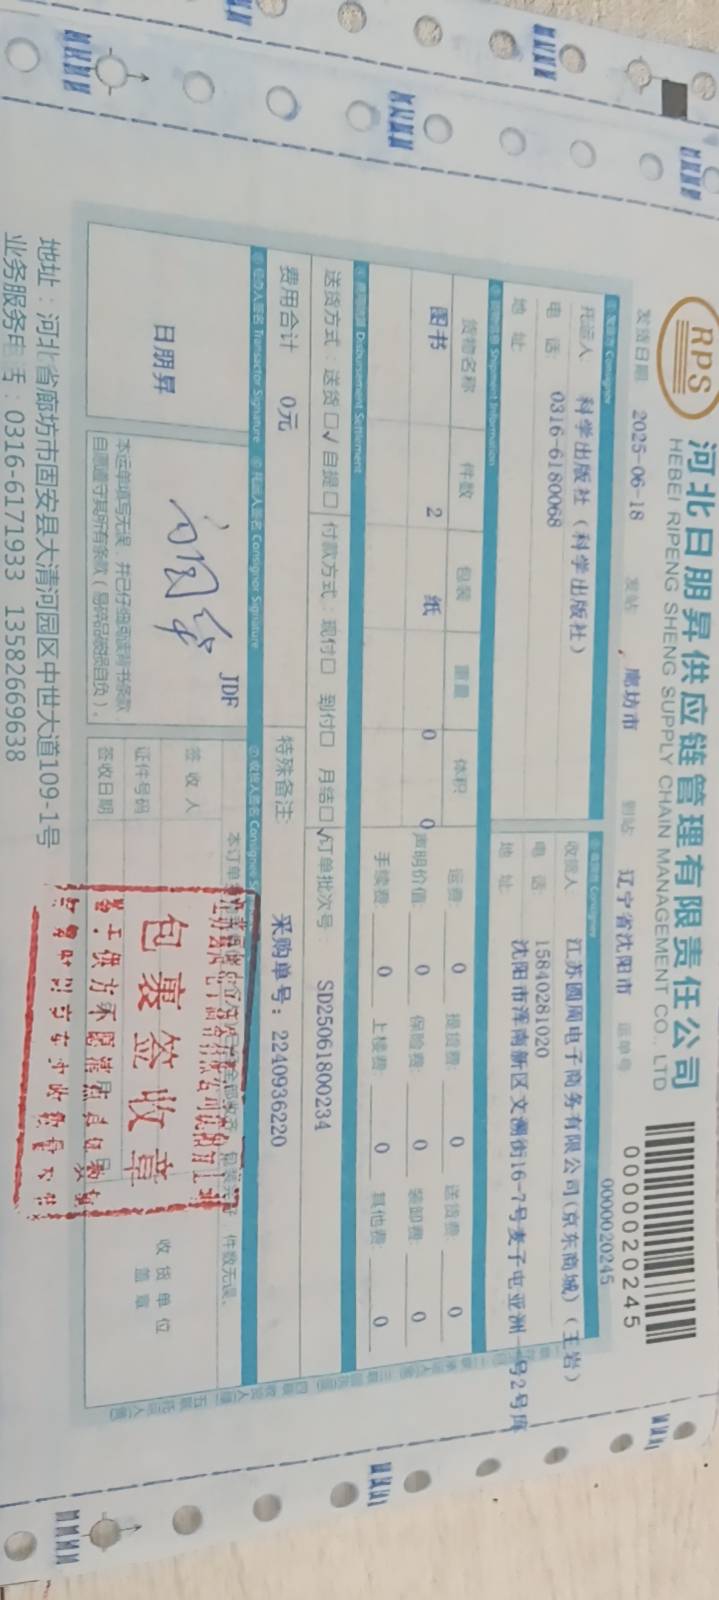 RPS
河北日朋昇供应链管理有限责任公司
HEBEI RIPENG SHENG SUPPLY CHAIN MANAGEMENT CO., LTD
0000020245
发货日期 2025-06-18 发站 廊坊市 到站 辽宁省沈阳市 运单号 0000020245
① 发货方 Consignor
② 收货方 Consignee
托运人: 科学出版社（科学出版社）
收货人: 江苏圆周电子商务有限公司(京东商城)（王岩）
电 话: 0316-6180068
电 话: 15840281020
地 址:
地 址: 沈阳市浑南新区文溯街16-7号麦子屯亚洲一号2号库
Shipment Information
货物名称 件数 包装 重量 体积
图书 2 纸 0 0
运费: 0 提货费: 0 送货费: 0
声明价值: 0 保险费: 0 装卸费: 0
手续费: 0 上楼费: 0 其他费: 0
Disbursement Settlement
送货方式: 送货□√ 自提□ 付款方式: 现付□ 到付□ 月结□√ 订单批次号: SD25061800234
费用合计 0元 特殊备注: 采购单号: 2240936220
经办人签名 Transactor Signature
托运人签名 Consignor Signature
收货人签名 Consignee
日朋昇
JDF
本运单填写无误，并已仔细阅读背书条款，
自愿遵守其所有条款（易碎品破损自负）。
本订单
件数无误。
签 收 人
证件号码
签收日期
收 货 单 位
盖 章
包裹签收章
地址：河北省廊坊市固安县大清河园区中世大道109-1号
业务服务电话：0316-6171933 13582669638